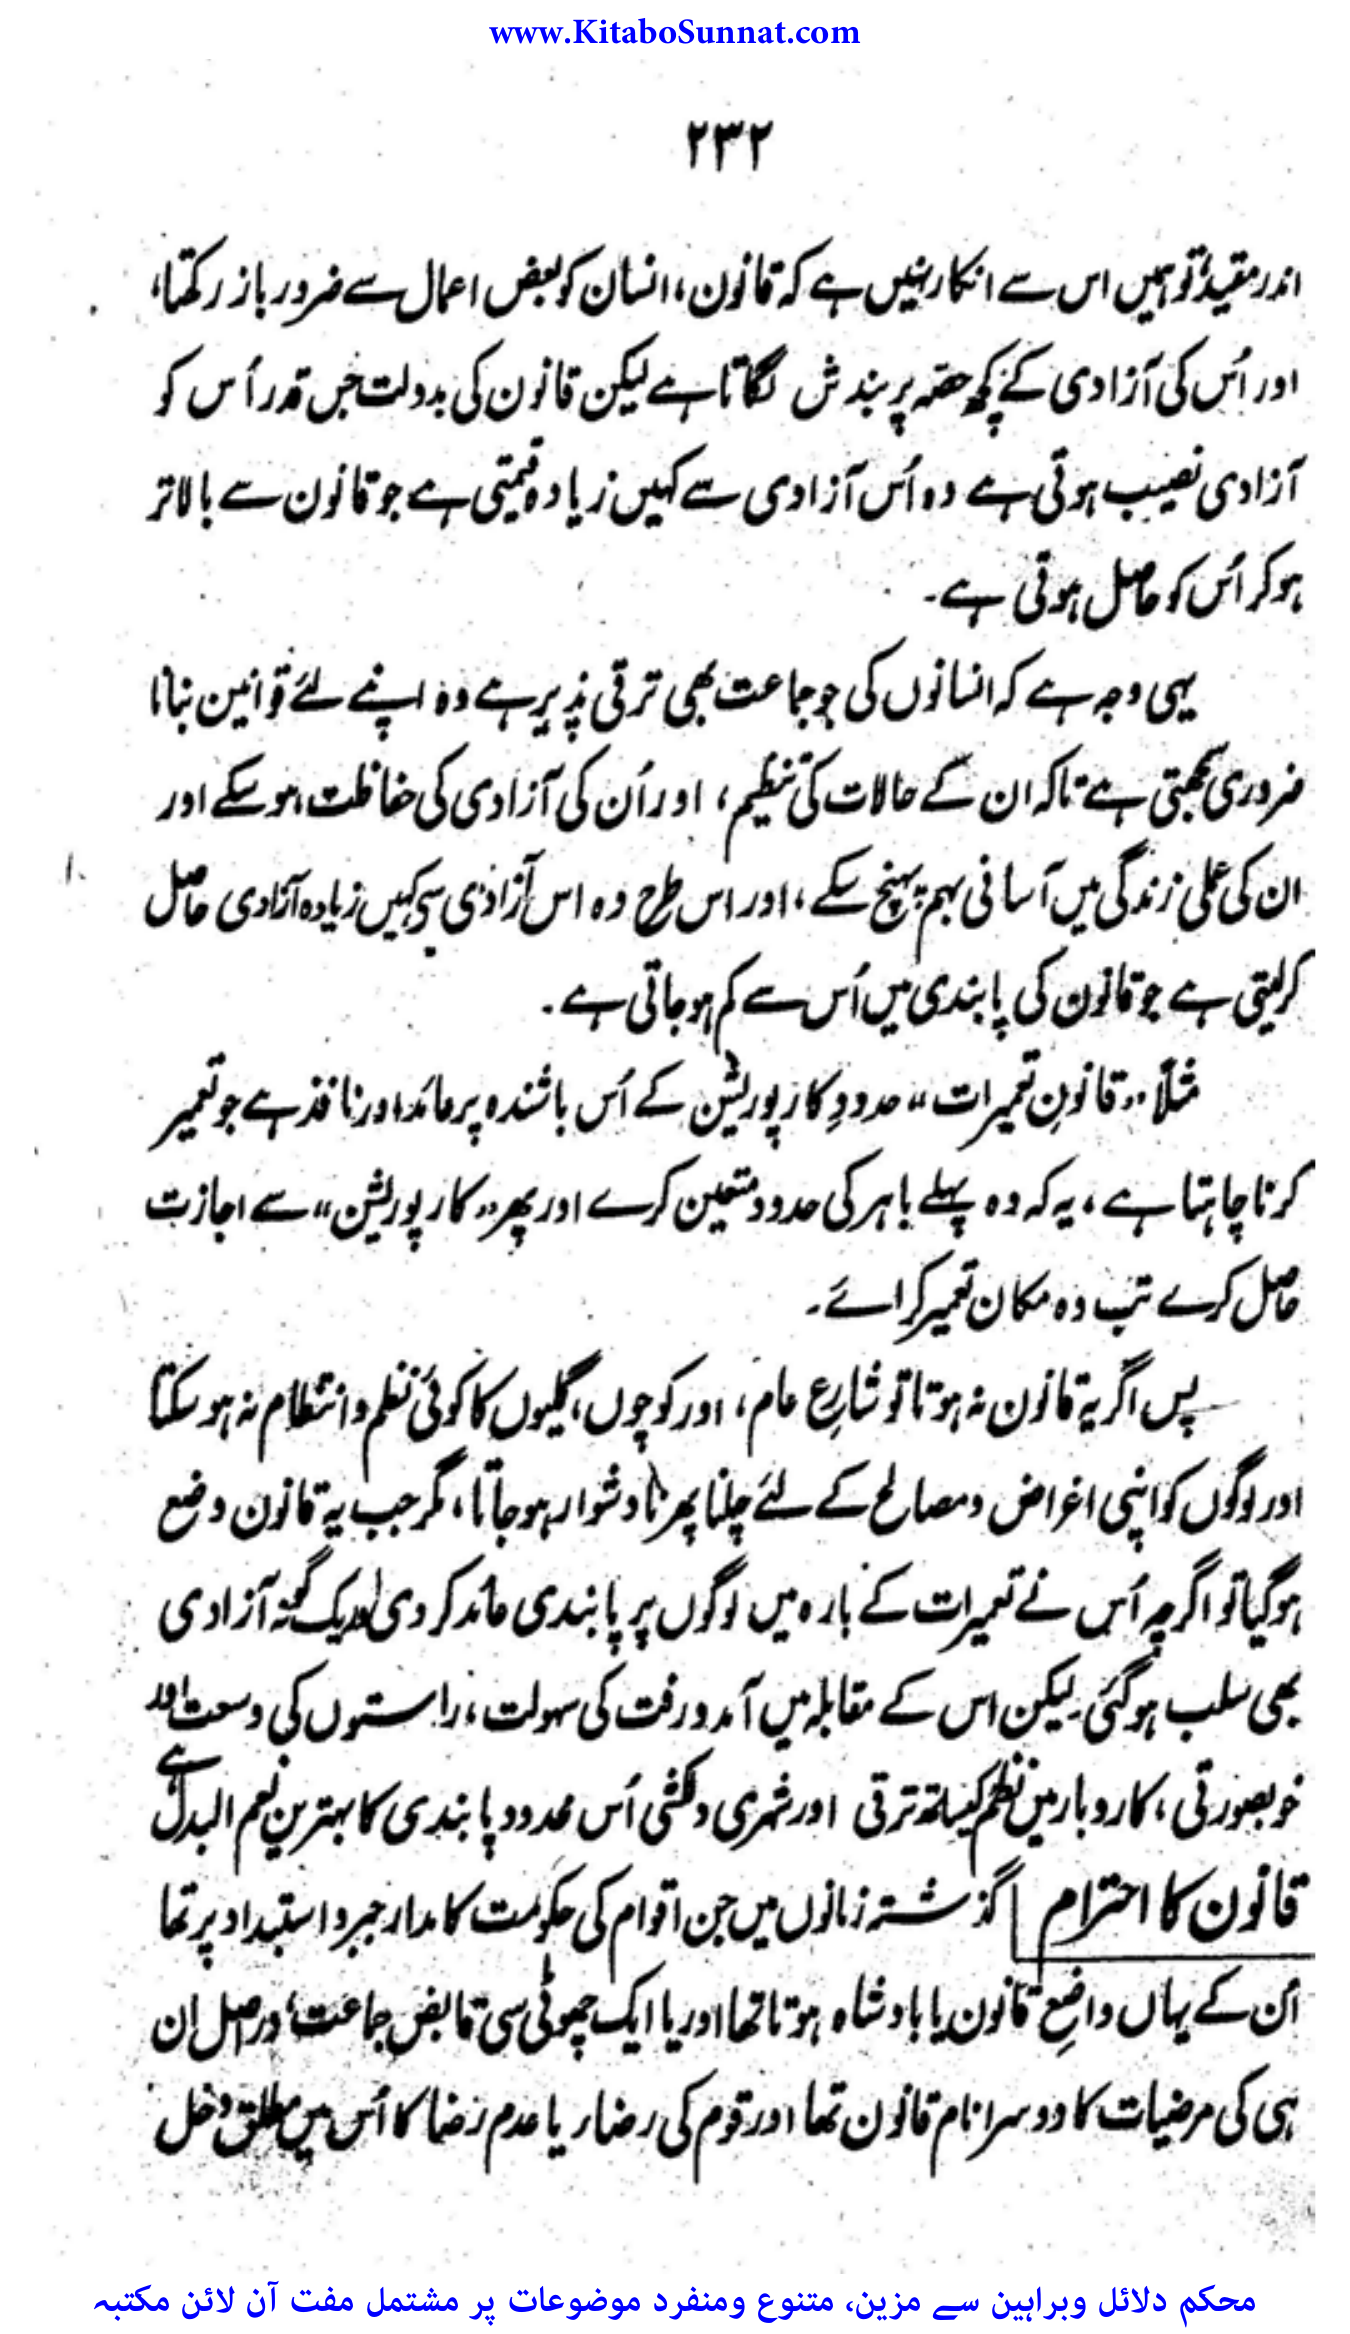 www.KitaboSunnat.com
۲۳۲
اندر مقید، تو ہمیں اس سے انکار نہیں ہے کہ قانون، انسان کو بعض اعمال سے ضرور باز رکھتا،
اور اُس کی آزادی کے کچھ حصّہ پر بندش لگاتا ہے لیکن قانون کی بدولت جس قدر اُس کو
آزادی نصیب ہوتی ہے وہ اُس آزادی سے کہیں زیادہ قیمتی ہے جو قانون سے بالاتر
ہو کر اُس کو حاصل ہوتی ہے۔
یہی وجہ ہے کہ انسانوں کی جو جماعت بھی ترقی پذیر ہے وہ اپنے لئے قوانین بنانا
ضروری سمجھتی ہے تاکہ ان کے حالات کی تنظیم، اور اُن کی آزادی کی حفاظت ہو سکے اور
ان کی عملی زندگی میں آسانی بہم پہنچ سکے، اور اس طرح وہ اس آزادی سے کہیں زیادہ آزادی حاصل
کر لیتی ہے جو قانون کی پابندی میں اُس سے کم ہو جاتی ہے۔
مثلاً "قانونِ تعمیرات" حدودِ کارپوریشن کے اُس باشندہ پر عائد اور نافذ ہے جو تعمیر
کرنا چاہتا ہے، یہ کہ وہ پہلے باہر کی حدود متعین کرے اور پھر "کارپوریشن" سے اجازت
حاصل کرے تب وہ مکان تعمیر کرائے۔
پس اگر یہ قانون نہ ہوتا تو شارعِ عام، اور کوچوں، گلیوں کا کوئی نظم و انتظام نہ ہو سکتا
اور لوگوں کو اپنی اغراض و مصالح کے لئے چلنا پھرنا دشوار ہو جاتا، مگر جب یہ قانون وضع
ہو گیا تو اگرچہ اُس نے تعمیرات کے بارہ میں لوگوں پر پابندی عائد کر دی اور یک گونہ آزادی
بھی سلب ہو گئی لیکن اس کے مقابلہ میں آمدورفت کی سہولت، راستوں کی وسعت اور
خوبصورتی، کاروبار میں نظم کیساتھ ترقی اور شہری دلکشی اُس محدود پابندی کا بہترین نعم البدل ہے
قانون کا احترام گذشتہ زمانوں میں جن اقوام کی حکومت کا مدار جبر و استبداد پر تھا
اُن کے یہاں واضعِ قانون یا بادشاہ ہوتا تھا اور یا ایک چھوٹی سی قابض جماعت، دراصل ان
ہی کی مرضیات کا دوسرا نام قانون تھا اور قوم کی رضاء یا عدم رضا کا اُس میں مطلق دخل
محکم دلائل وبراہین سے مزین، متنوع ومنفرد موضوعات پر مشتمل مفت آن لائن مکتبہ